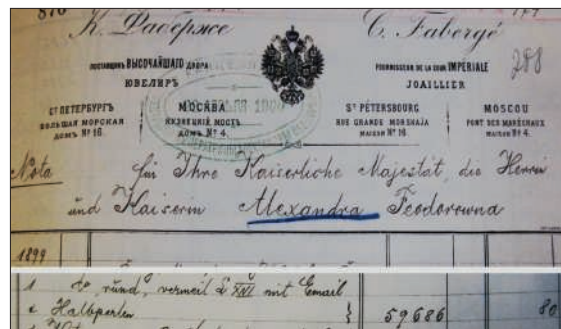 К. Фаберже
C. Fabergé
288
ПОСТАВЩИКЪ ВЫСОЧАЙШАГО ДВОРА
FOURNISSEUR DE LA COUR IMPÉRIALE
ЮВЕЛИРЪ
JOAILLIER
СТ ПЕТЕРБУРГЪ
БОЛЬШАЯ МОРСКАЯ
ДОМЪ № 16.
МОСКВА
КУЗНЕЦКІЙ МОСТЪ
ДОМЪ № 4.
ST PÉTERSBOURG
RUE GRANDE MORSKAJA
MAISON № 16.
MOSCOU
PONT DES MARÉCHAUX
MAISON № 4.
Nota für Ihre Kaiserliche Majestät, die Herrin
und Kaiserin Alexandra Feodorowna
1899
1 do rund, vermeil mit Email
Halbperlen } 59686 80